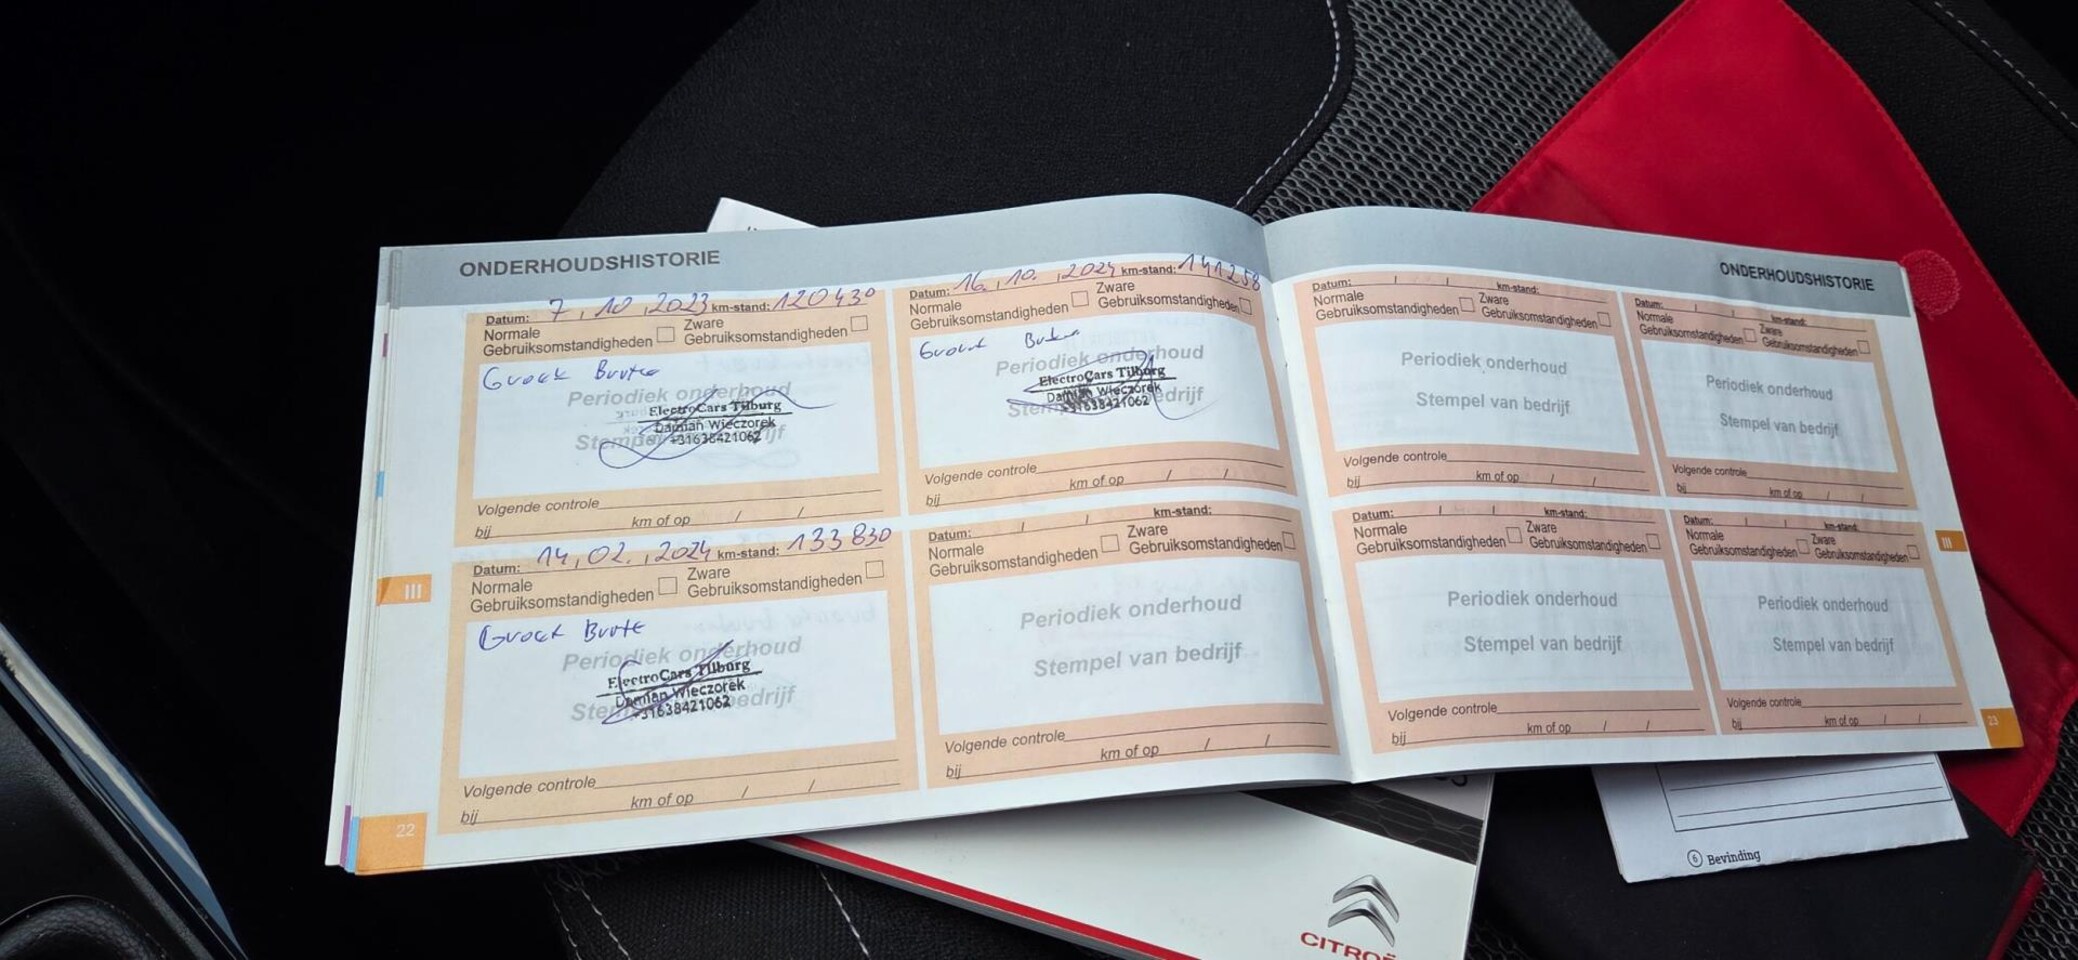 ONDERHOUDSHISTORIE
Datum: 7, 10, 2023 km-stand: 120430
Normale Gebruiksomstandigheden
Zware Gebruiksomstandigheden
Periodiek onderhoud
ElectroCars Tilburg
Damian Wieczorek
+31638421062
Volgende controle
bij km of op / /
Datum: 14, 02., 2024 km-stand: 133 830
Normale Gebruiksomstandigheden
Zware Gebruiksomstandigheden
Periodiek onderhoud
ElectroCars Tilburg
Damian Wieczorek
+31638421062
Volgende controle
bij km of op / /
III
22
Datum: 16., 10., 2024 km-stand: 141258
Normale Gebruiksomstandigheden
Zware Gebruiksomstandigheden
Periodiek onderhoud
ElectroCars Tilburg
Damian Wieczorek
+31638421062
Volgende controle
bij km of op / /
Datum: / / km-stand:
Normale Gebruiksomstandigheden
Zware Gebruiksomstandigheden
Periodiek onderhoud
Stempel van bedrijf
Volgende controle
bij km of op / /
ONDERHOUDSHISTORIE
Datum: / / km-stand:
Normale Gebruiksomstandigheden
Zware Gebruiksomstandigheden
Periodiek onderhoud
Stempel van bedrijf
Volgende controle
bij km of op / /
Datum: / / km-stand:
Normale Gebruiksomstandigheden
Zware Gebruiksomstandigheden
Periodiek onderhoud
Stempel van bedrijf
Volgende controle
bij km of op / /
Datum: / / km-stand:
Normale Gebruiksomstandigheden
Zware Gebruiksomstandigheden
Periodiek onderhoud
Stempel van bedrijf
Volgende controle
bij km of op / /
Datum: / / km-stand:
Normale Gebruiksomstandigheden
Zware Gebruiksomstandigheden
Periodiek onderhoud
Stempel van bedrijf
Volgende controle
bij km of op / /
III
23
6 Bevinding
CITROË